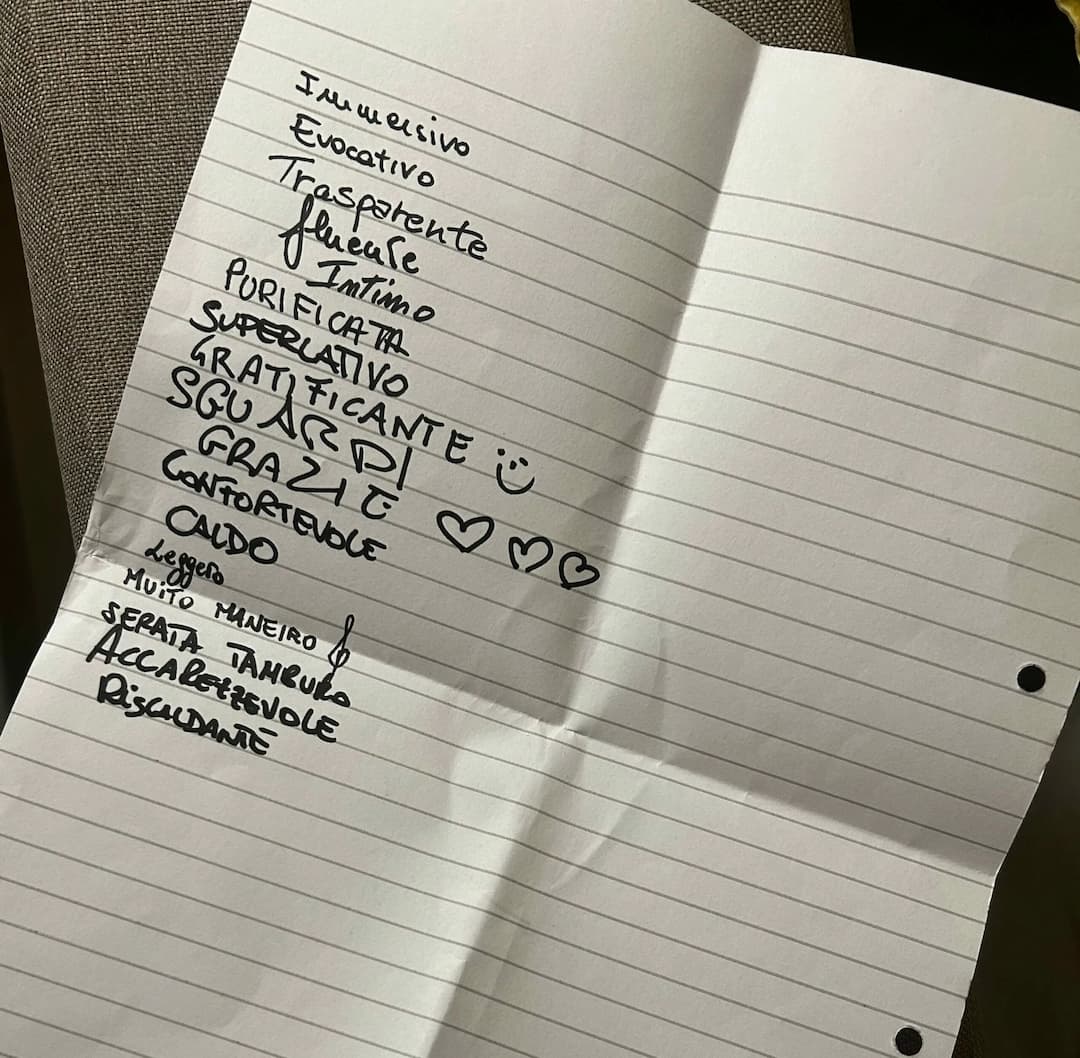 Immersivo
Evocativo
Trasparente
fluente
Intimo
PURIFICATA
SUPERLATIVO
GRATIFICANTE
SGUARDI
GRAZIE
CONFORTEVOLE
CALDO
Leggero
MUITO MANEIRO
SERATA TAMBURO
ACCAREZZEVOLE
RISCALDANTE